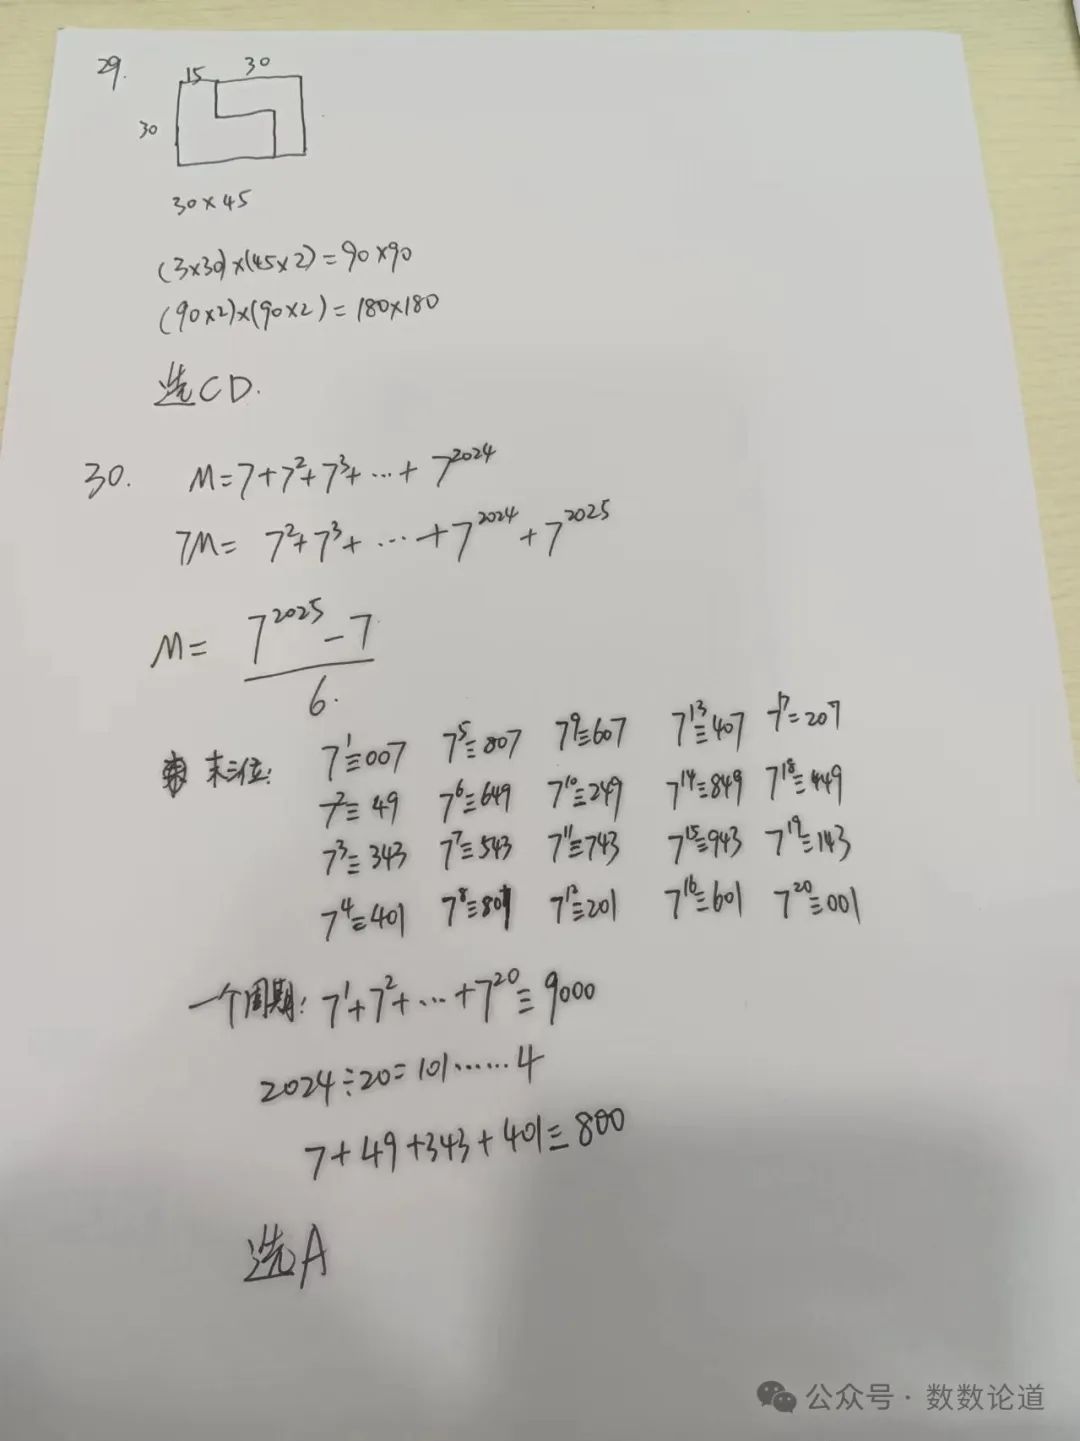 29.
15 30
30
30×45
(3×30)×(45×2)=90×90
(90×2)×(90×2)=180×180
选CD.
30. M=7+7²+7³+…+7²⁰²⁴
7M=7²+7³+…+7²⁰²⁴+7²⁰²⁵
M=(7²⁰²⁵-7)/6.
末三位: 7¹≡007 7⁵≡807 7⁹≡607 7¹³≡407 7¹⁷≡207
7²≡49 7⁶≡649 7¹⁰≡249 7¹⁴≡849 7¹⁸≡449
7³≡343 7⁷≡543 7¹¹≡743 7¹⁵≡943 7¹⁹≡143
7⁴≡401 7⁸≡801 7¹²≡201 7¹⁶≡601 7²⁰≡001
一个周期: 7¹+7²+…+7²⁰≡9000
2024÷20=101……4
7+49+343+401≡800
选A
公众号·数数论道